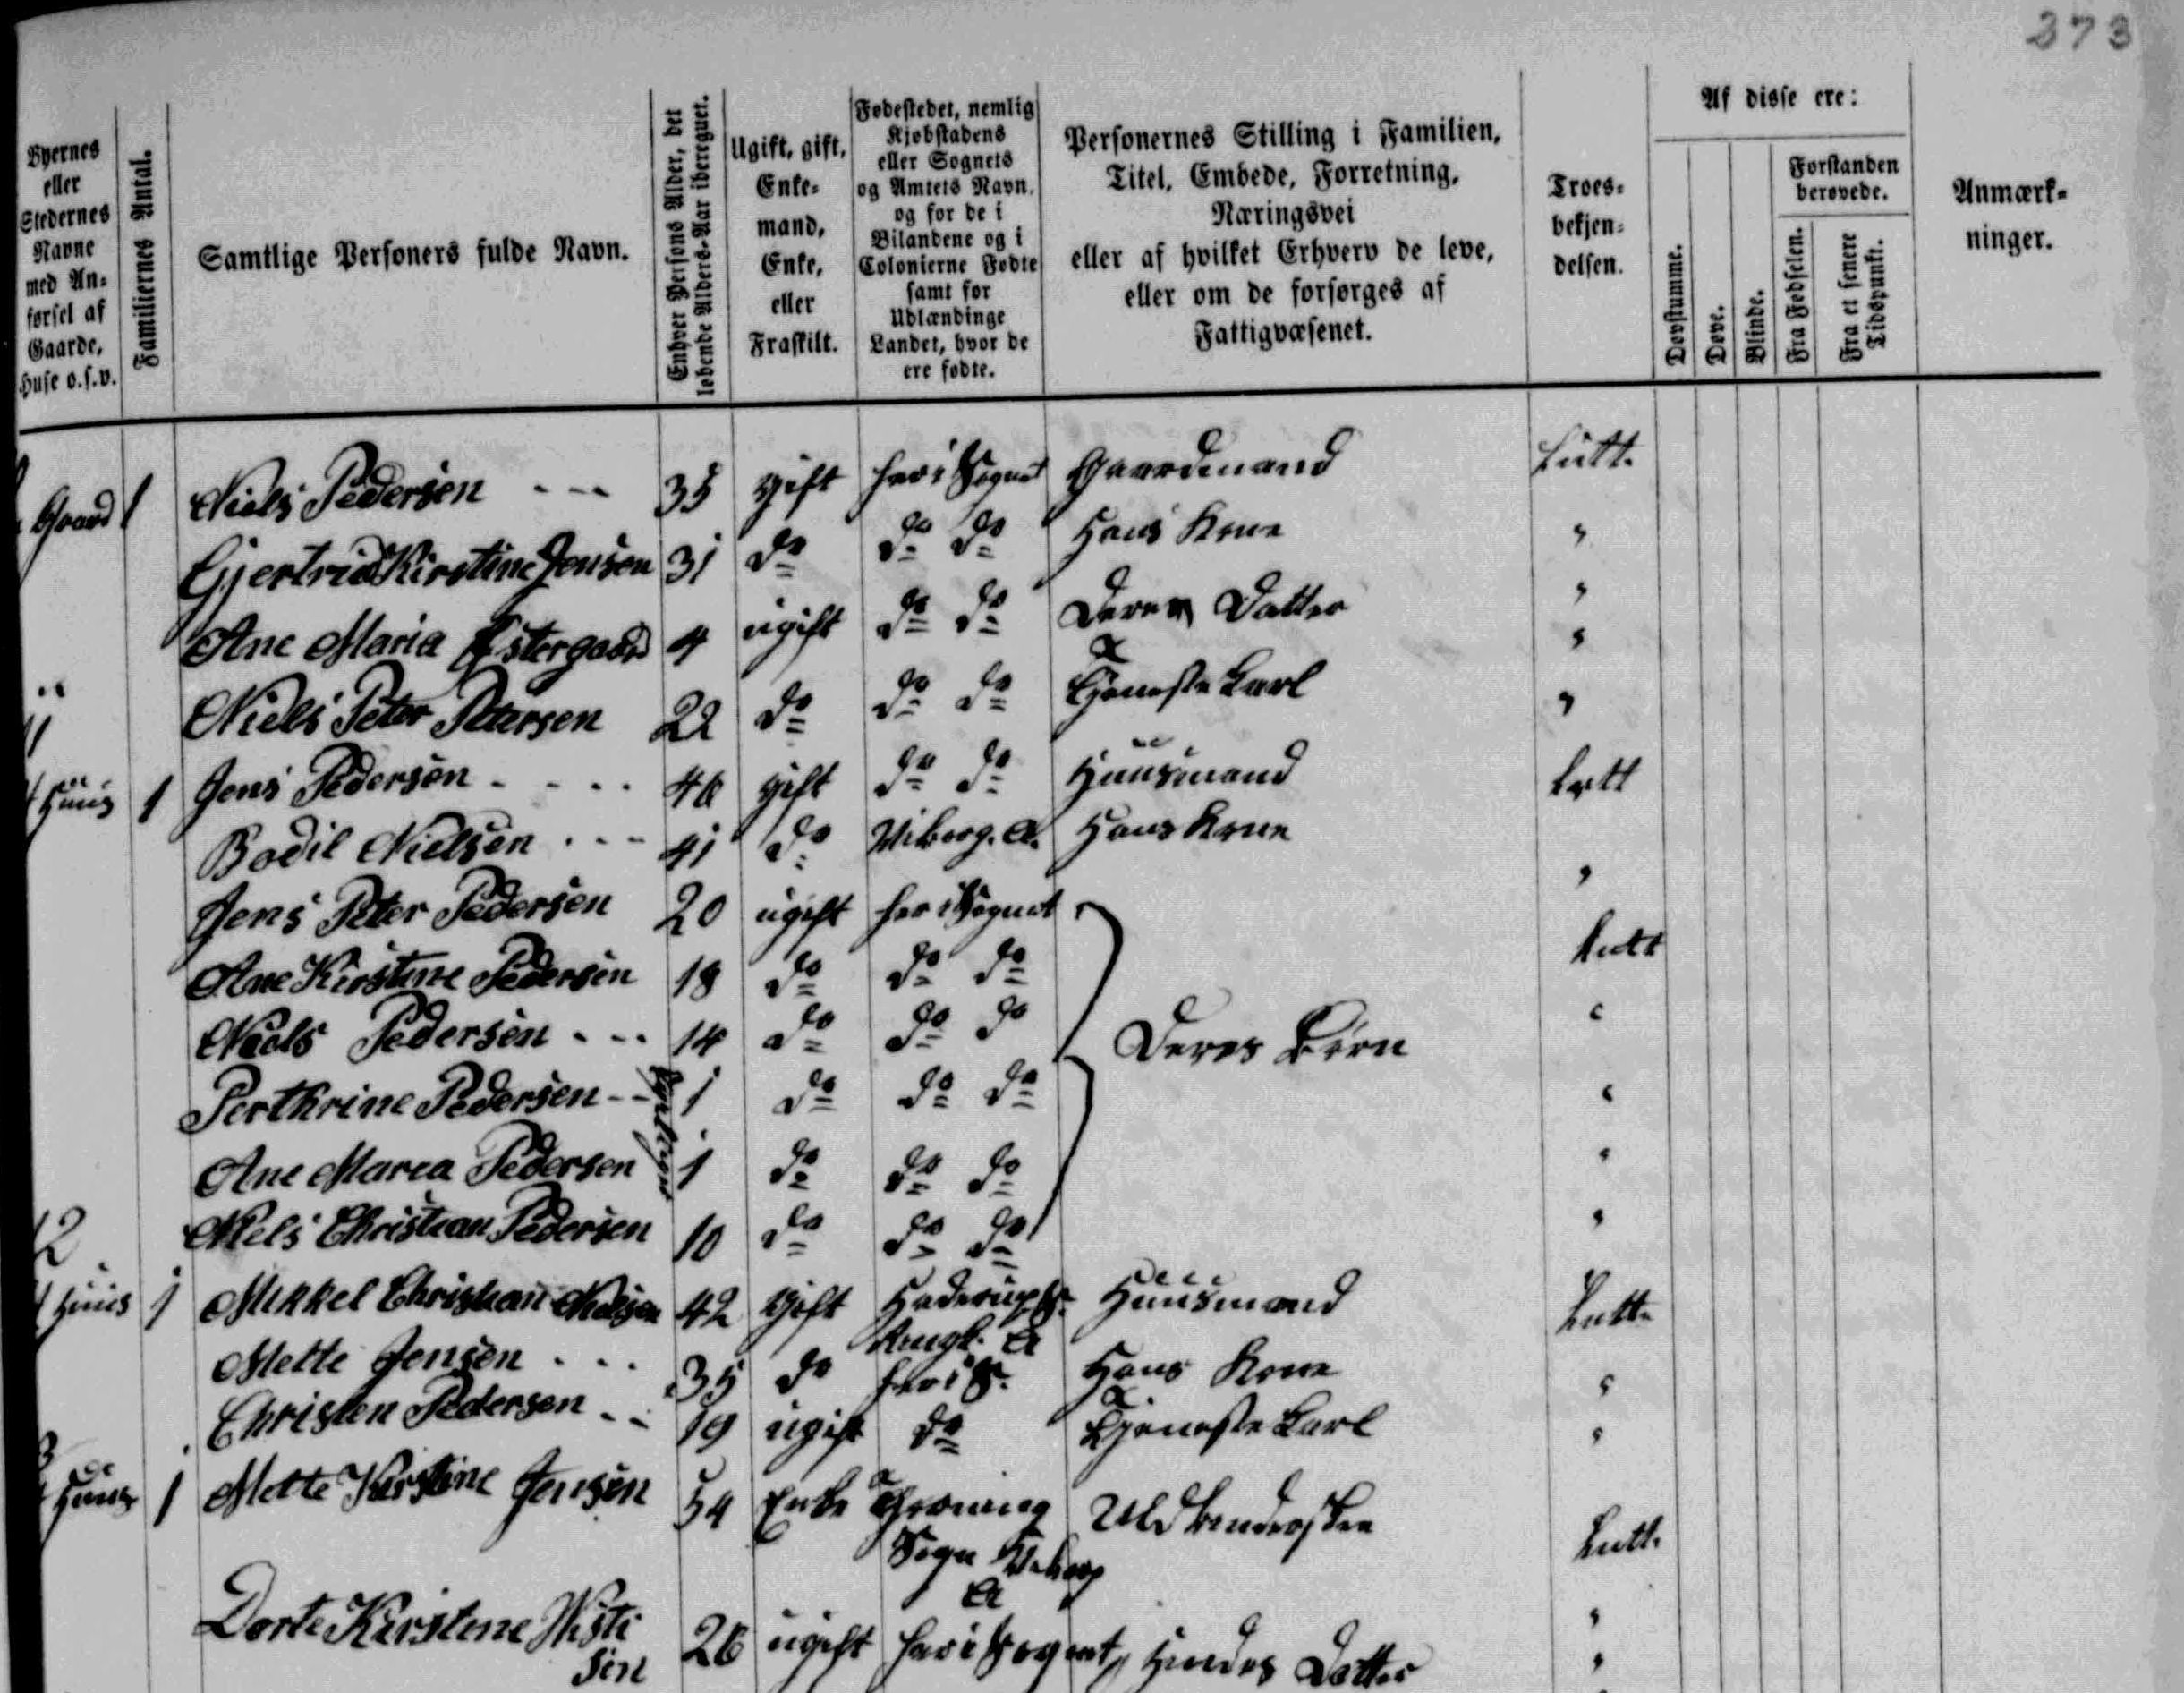 373
Byernes eller Stedernes Navne med Anførsel af Gaarde, Huse o.s.v.
Familiernes Antal.
Samtlige Personers fulde Navn.
Enhver Persons Alder, det løbende Alders-Aar iberegnet.
Ugift, gift, Enkemand, Enke, eller Fraskilt.
Fødestedet, nemlig Kjøbstadens eller Sognets og Amtets Navn, og for de i Bilandene og i Colonierne Fødte samt for Udlændinge Landet, hvor de ere fødte.
Personernes Stilling i Familien, Titel, Embede, Forretning, Næringsvei eller af hvilket Erhverv de leve, eller om de forsørges af Fattigvæsenet.
Troesbekjendelsen.
Af disse ere:
Døvstumme.
Døve.
Blinde.
Forstanden berøvede.
Fra Fødselen.
Fra et senere Tidspunkt.
Anmærkninger.
Gaard 1 Niels Pedersen - - - 35 gift her i Sognet Gaardmand Luth.
Gjertrud Kirstine Jensen 31 do do do Hans Kone "
Ane Maria Østergaard 4 ugift do do Deres Datter "
Niels Peter Petersen 22 do do do Tjenestekarl "
Huus 1 Jens Pedersen - - - - 46 gift do do Huusmand Luth
Bodil Nielsen - - - 41 do Viborg. A. Hans Kone
Jens Peter Pedersen 20 ugift her i Sognet "
Ane Kirstine Pedersen 18 do do do Luth
Niels Pedersen - - - 14 do do do Deres Børn "
Perthrine Pedersen - - 1 do do do "
Ane Maria Pedersen 1 do do do "
Niels Christian Pedersen 10 do do do "
12
Huus 1 Mikkel Christian Nielsen 42 gift Haderup S. Ringk. A Huusmand Luth.
Mette Jensen . . . 35 do her i S. Hans Kone "
Christen Pedersen - - 19 ugift do Tjenestekarl "
Huus 1 Mette Kirstine Jensen 54 Enke Sogn Viborg A Uldbinderske Luth.
Dorte Kirstine Wistisen 26 ugift her i Sognet Hendes Datter "